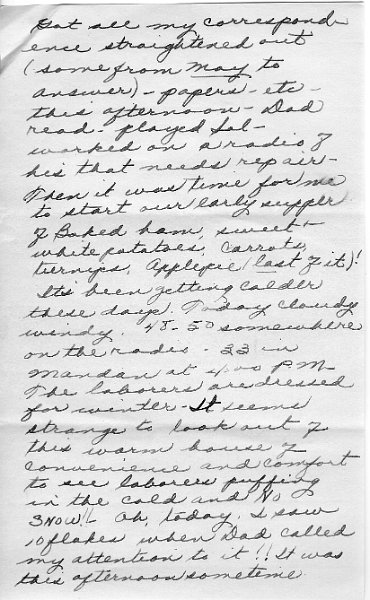 Got all my correspond-
ence straightened out
(some from May to
answer) - papers - etc -
this afternoon - Dad
read - played Sol -
worked on a radio of
his that needs repair -
Then it was time for me
to start our early supper
of Baked ham, sweet +
white potatoes, carrots,
turnips, Applepie (last of it)!
It's been getting colder
these days. Today cloudy
windy. 45-50 somewhere
on the radio - 33 in
Mandan at 4:00 P.M.
The laborers are dressed
for winter - It seems
strange to look out of
this warm house of
convenience and comfort
to see laborers puffing
in the cold and NO
SNOW!! Oh, today, I saw
10 flakes when Dad called
my attention to it!! It was
this afternoon sometime